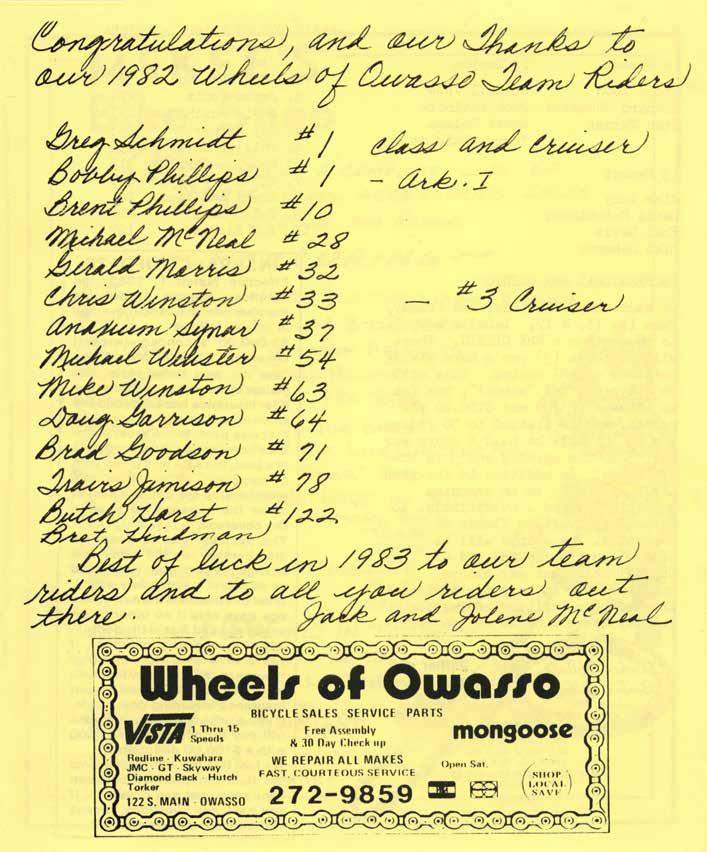 Congratulations, and our Thanks to
our 1982 Wheels of Owasso Team Riders
Greg Schmidt #1 class and cruiser
Bobby Phillips #1 - Ark. I
Brent Phillips #10
Michael McNeal #28
Gerald Morris #32
Chris Winston #33 - #3 Cruiser
Synar #37
Michael Webster #54
Mike Winston #63
Doug Garrison #64
Brad Goodson #71
Travis Jimison #78
Butch Harst #122
Bret Hindman
Best of luck in 1983 to our team
riders and to all you riders out
there. Jack and Jolene McNeal
Wheels of Owasso
BICYCLE SALES SERVICE PARTS
VISTA 1 Thru 15 Speeds
Free Assembly
& 30 Day Check up
mongoose
Redline - Kuwahara
JMC - GT - Skyway
Diamond Back - Hutch
Torker
122 S. MAIN - OWASSO
WE REPAIR ALL MAKES
FAST, COURTEOUS SERVICE
272-9859
Open Sat.
SHOP
LOCAL
SAVE